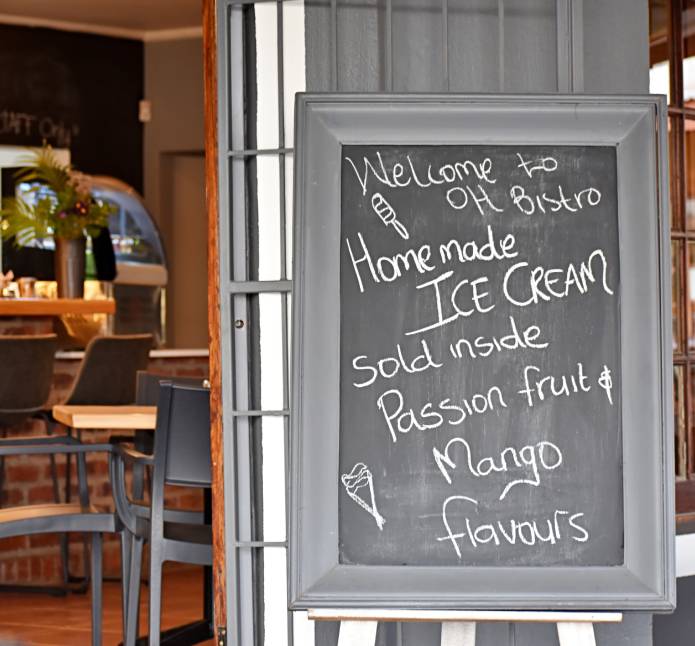 Welcome to
OH Bistro
Homemade
ICE CREAM
Sold inside
Passion fruit &
Mango
flavours